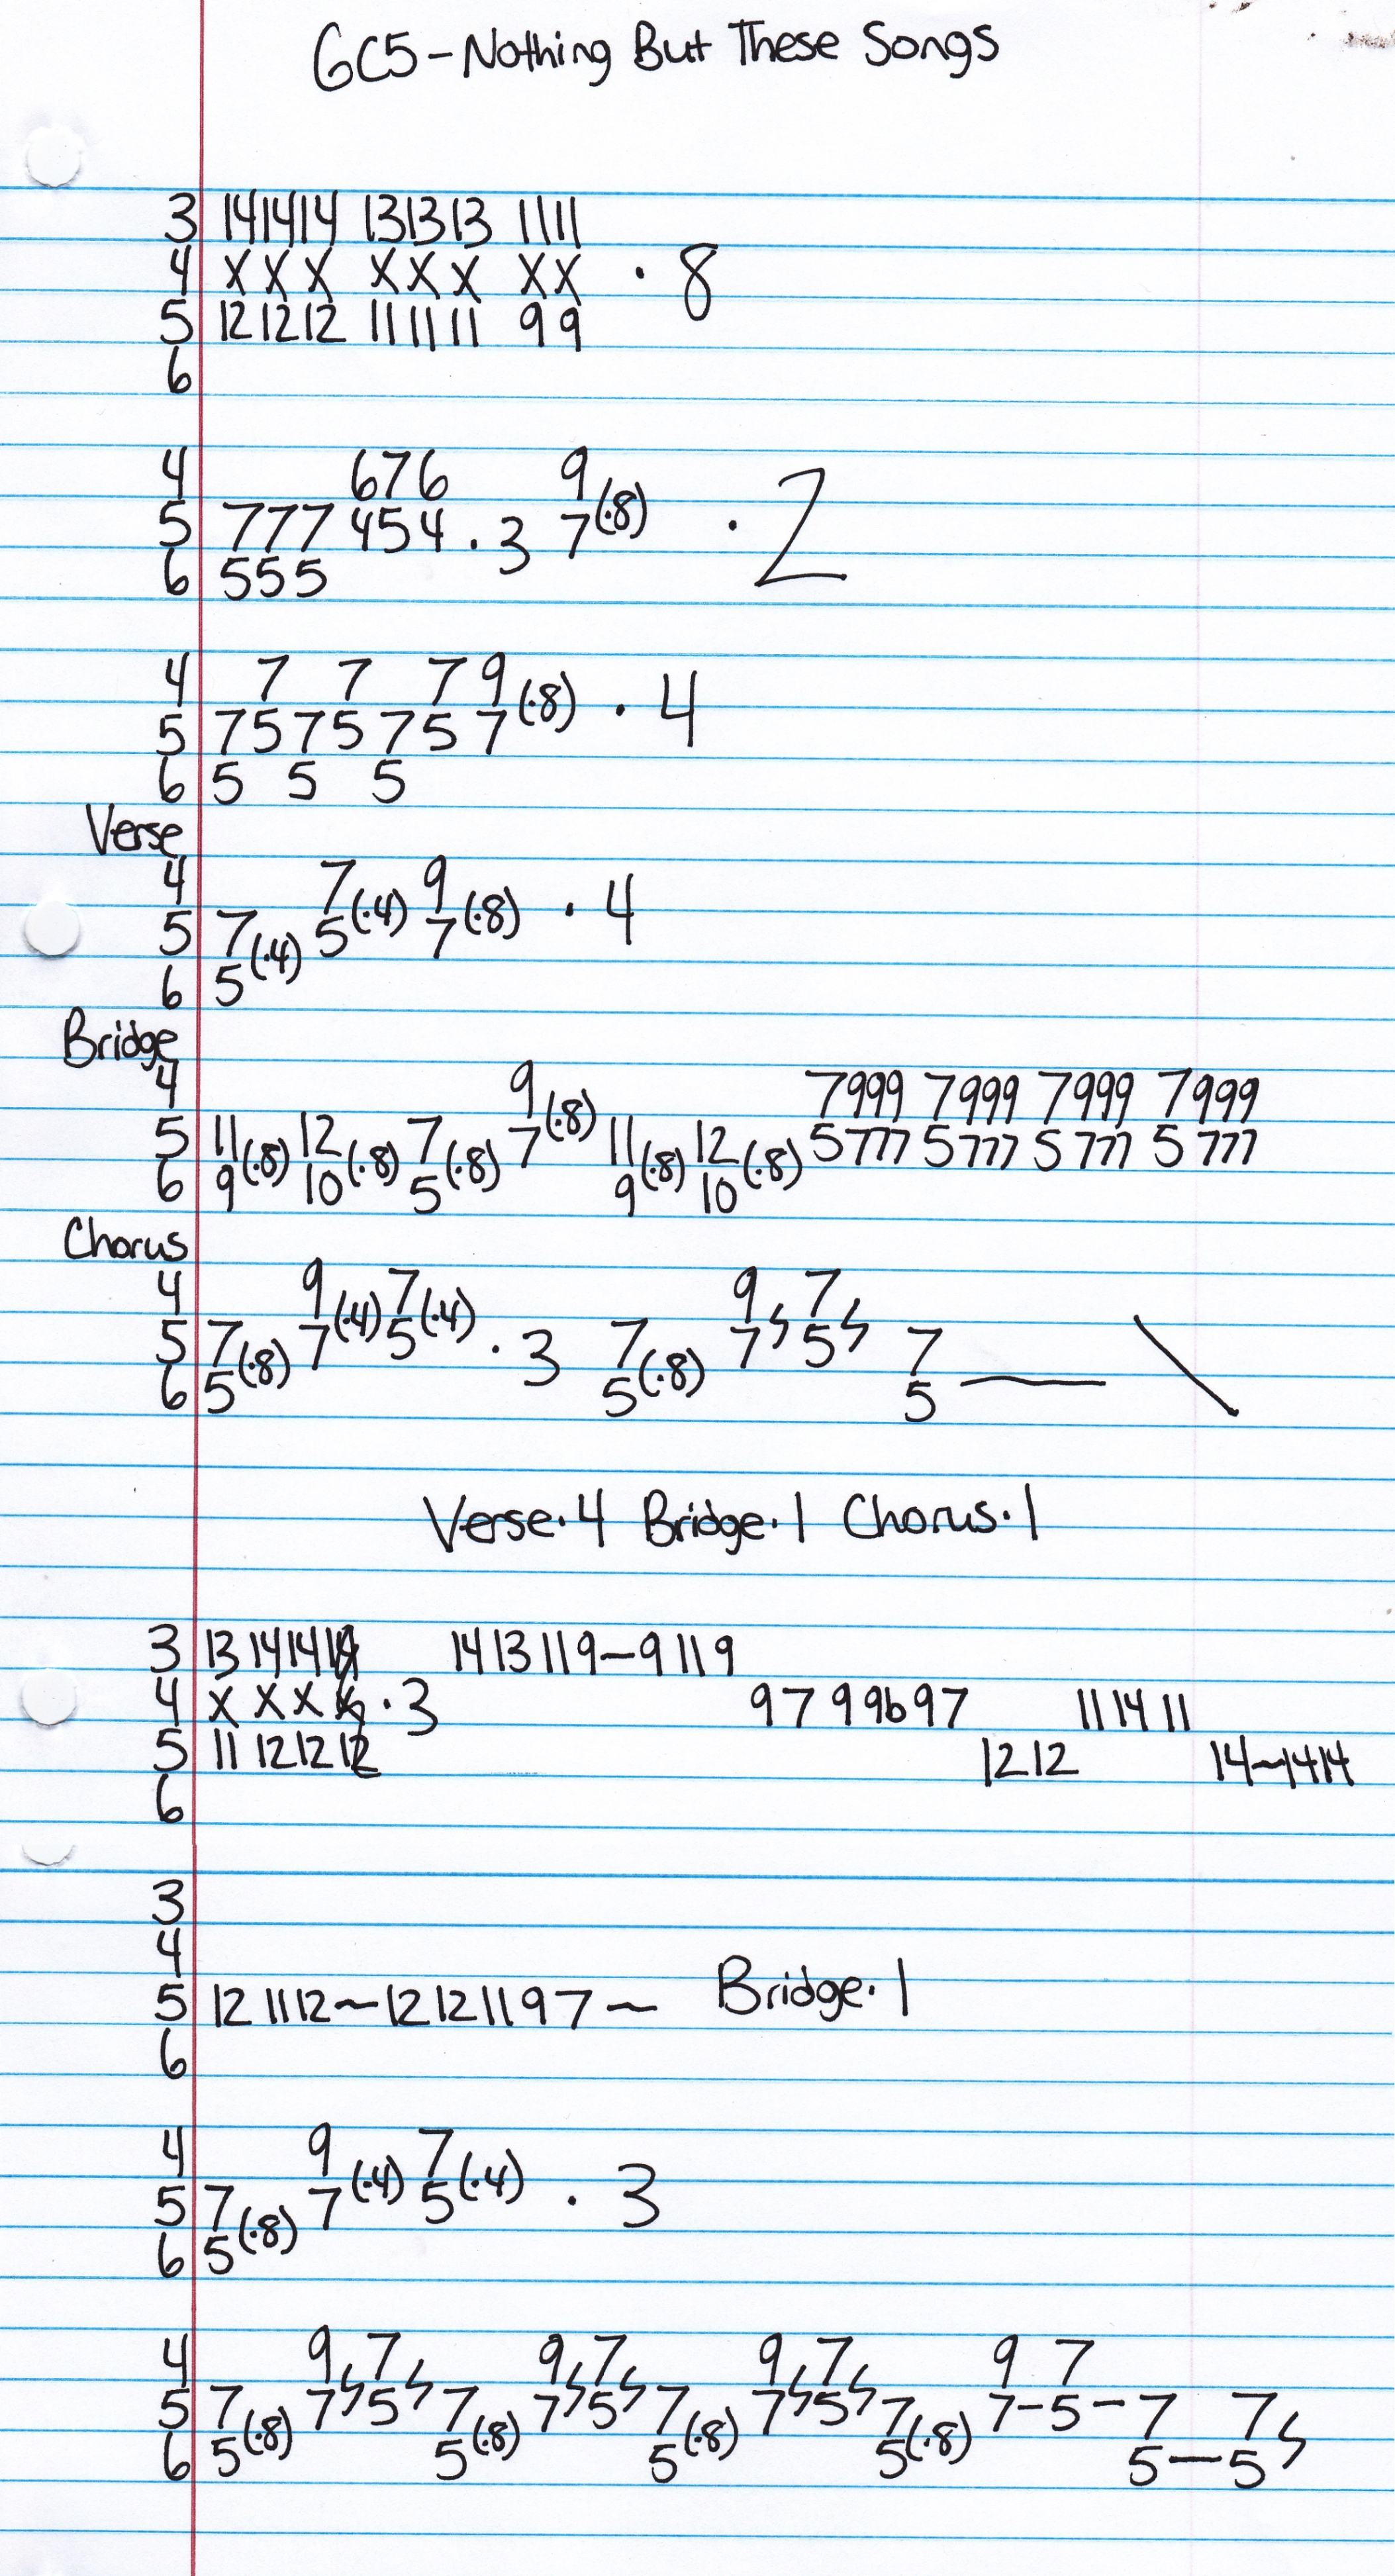 GC5-Nothing But These Songs
3 141414 131313 1111
4 x x x x x x x x · 8
5 121212 111111 9 9
6
4 676 9
5 777 454 · 3 7(·8) · 2
6 555
4 7 7 7 9
5 7 5 7 5 7 5 7 (·8) · 4
6 5 5 5
Verse
4 7 9
5 7 5(·4) 7(·8) · 4
6 5(·4)
Bridge
4 9 7999 7999 7999 7999
5 11 12 7 7(·8) 11 12 5777 5777 5777 5777
6 9(·8) 10(·8) 5(·8) 9(·8) 10(·8)
Chorus
4 9 7 9 7
5 7 7(·4) 5(·4) · 3 7 7 5 7
6 5(·8) 5(·8) 5
Verse·4 Bridge·1 Chorus·1
3 13 1414 14 13 11 9~9 11 9
4 x x x · 3 9 7 9 9b 9 7 11 14 11
5 11 1212 12 12 14~1414
6
3
4
5 12 11 12~12 12 11 9 7~ Bridge·1
6
4 9 7
5 7 7(·4) 5(·4) · 3
6 5(·8)
4 9 7 9 7 9 7 9 7
5 7 7 5 7 7 5 7 7 5 7 7-5-7 7
6 5(·8) 5(·8) 5(·8) 5(·8) 5—5